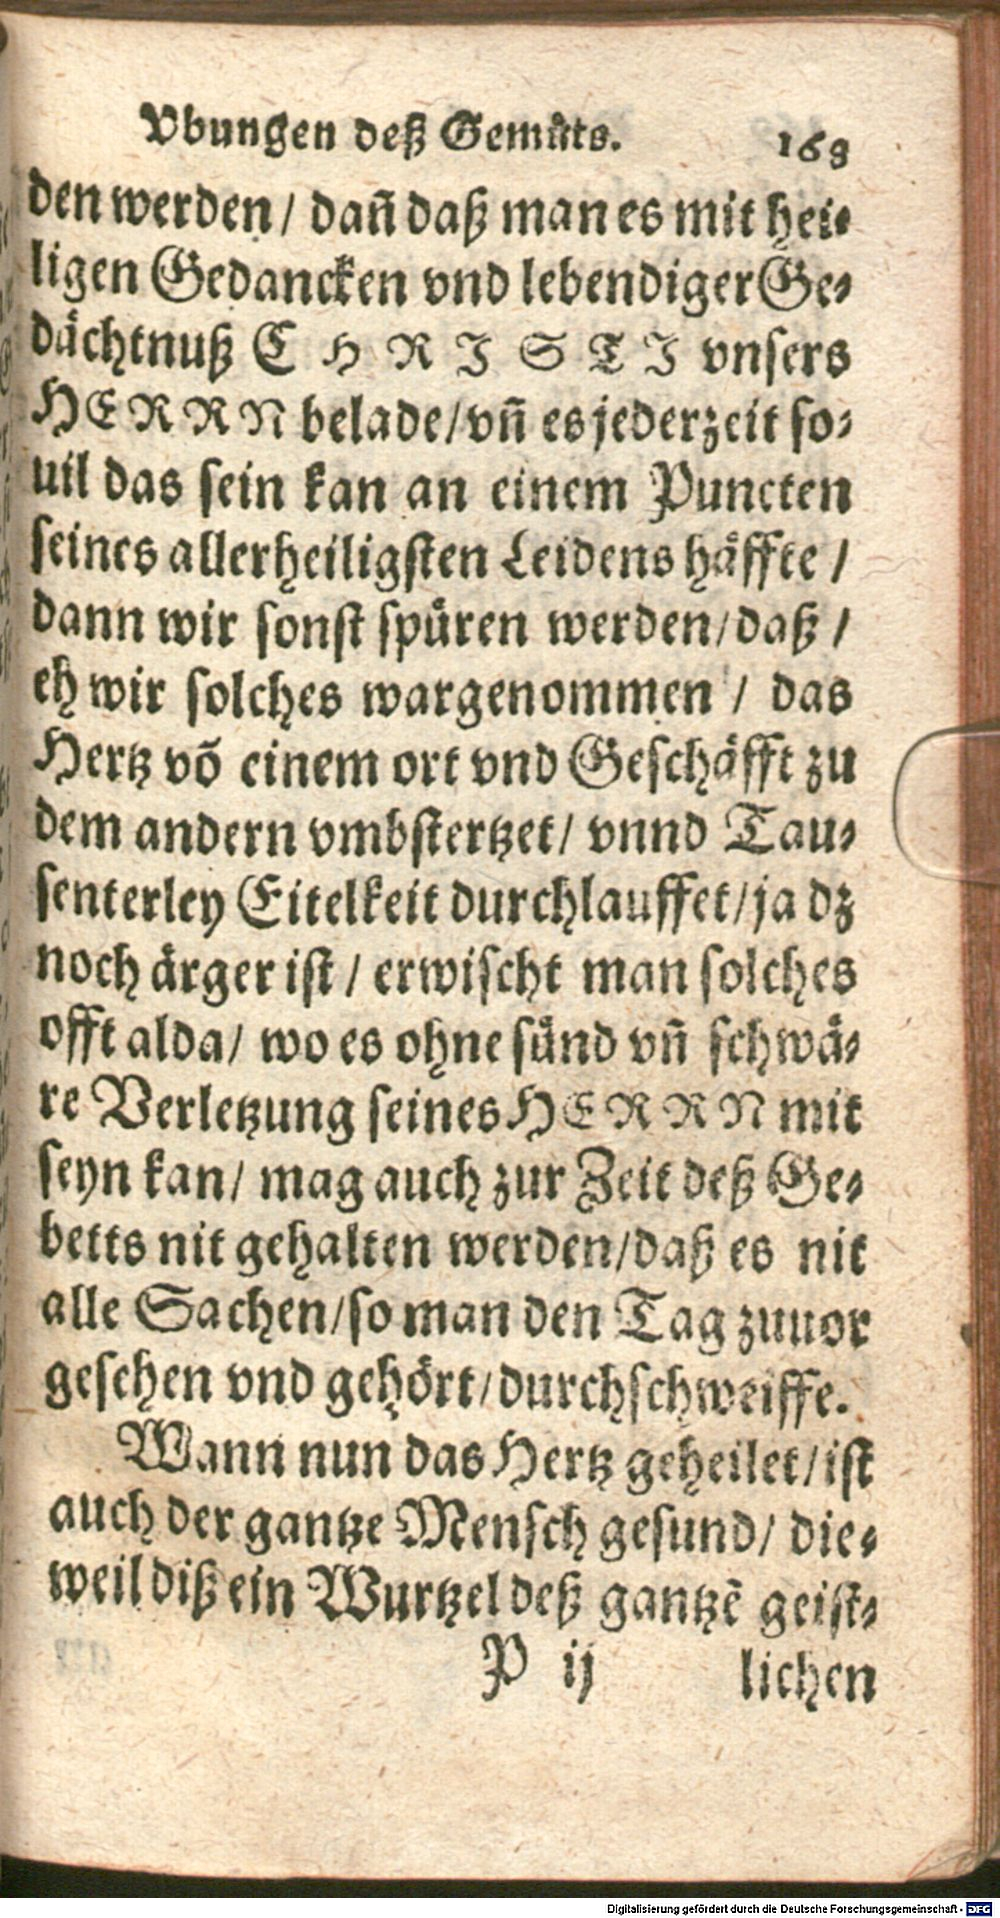 Vbungen deß Gemüts. 168
den werden / dañ daß man es mit hei-
ligen Gedancken vnd lebendiger Ge-
dächtnuß CHRISTI vnsers
HERRN belade / vñ es jederzeit so-
uil das sein kan an einem Puncten
seines allerheiligsten Leidens häffte /
dann wir sonst spüren werden / daß /
eh wir solches wargenommen / das
Hertz võ einem ort vnd Geschäfft zu
dem andern vmbstertzet / vnnd Tau-
senterley Eitelkeit durchlauffet / ja dz
noch ärger ist / erwischt man solches
offt alda / wo es ohne sünd vñ schwä-
re Verletzung seines HERRN mit
seyn kan / mag auch zur Zeit deß Ge-
betts nit gehalten werden / daß es nit
alle Sachen / so man den Tag zuuor
gesehen vnd gehört / durchschweiffe.
Wann nun das Hertz geheilet / ist
auch der gantze Mensch gesund / die-
weil diß ein Wurtzel deß gantzē geist-
P ij lichen
Digitalisierung gefördert durch die Deutsche Forschungsgemeinschaft - DFG